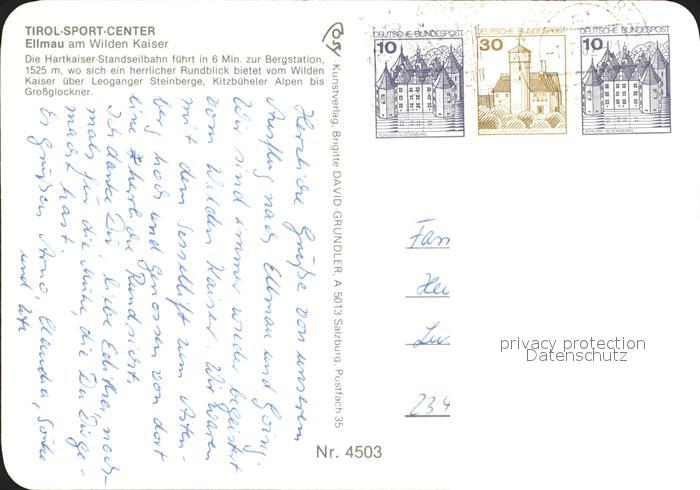 TIROL-SPORT-CENTER
Ellmau am Wilden Kaiser
Die Hartkaiser-Standseilbahn führt in 6 Min. zur Bergstation,
1525 m, wo sich ein herrlicher Rundblick bietet vom Wilden
Kaiser über Leoganger Steinberge, Kitzbüheler Alpen bis
Großglockner.
Herzliche Grüße von unserem
Ausflug nach Ellmau und Going.
Wir sind immer wieder begeistert
vom Wilden Kaiser. Wir waren
mit dem Sessellift zum
berg hoch und genossen von dort
eine herrliche Rundsicht.
Ich danke Dir, liebe noch-
mals für die Mühe, die Du Dir ge-
macht hast.
Es grüßen Arno, Claudia,
und Ute
Kunstverlag Brigitte DAVID GRUNDLER, A 5013 Salzburg, Postfach 35
Nr. 4503
DEUTSCHE BUNDESPOST
10
SCHLOSS GLÜCKSBURG
DEUTSCHE BUNDESPOST
30
DEUTSCHE BUNDESPOST
10
SCHLOSS GLÜCKSBURG
Fam
Hei
234
privacy protection
Datenschutz